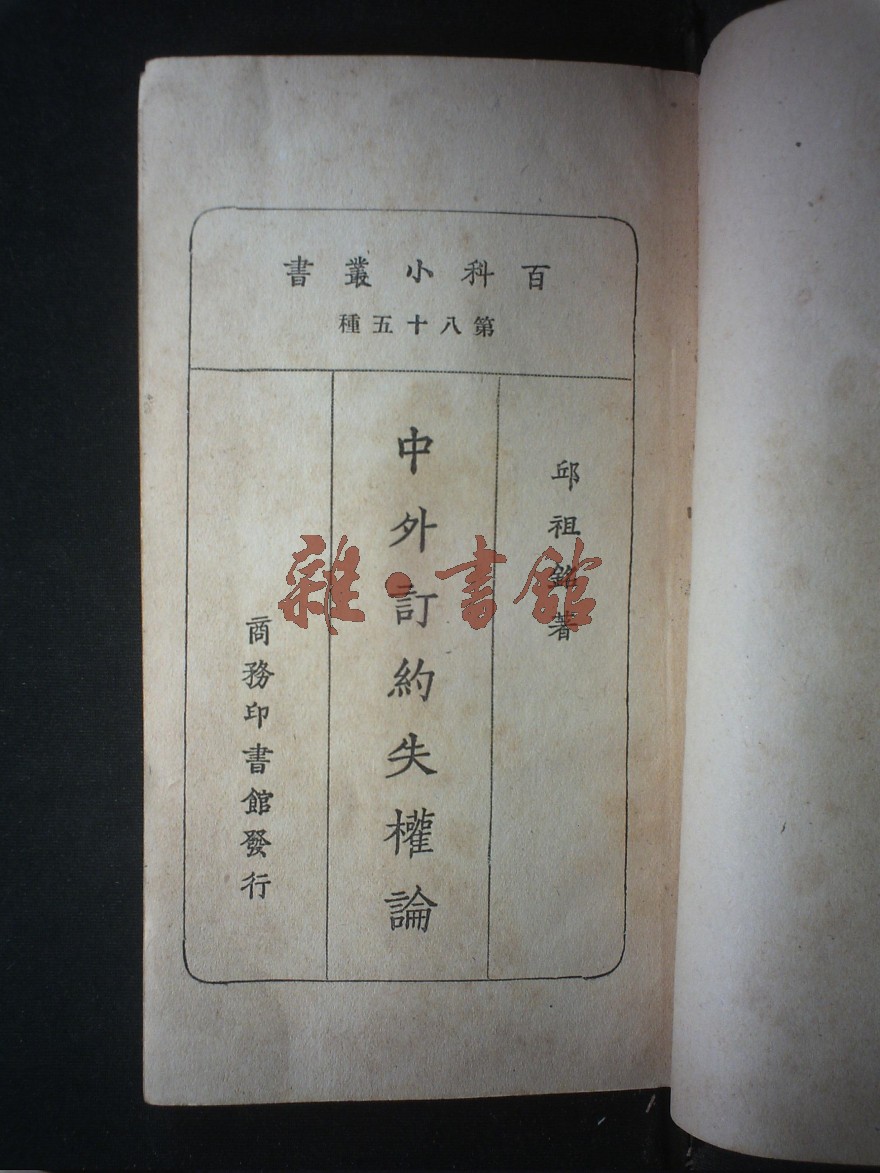 百科小叢書
第八十五種
邱祖銘著
中外訂約失權論
商務印書館發行
雜·書館